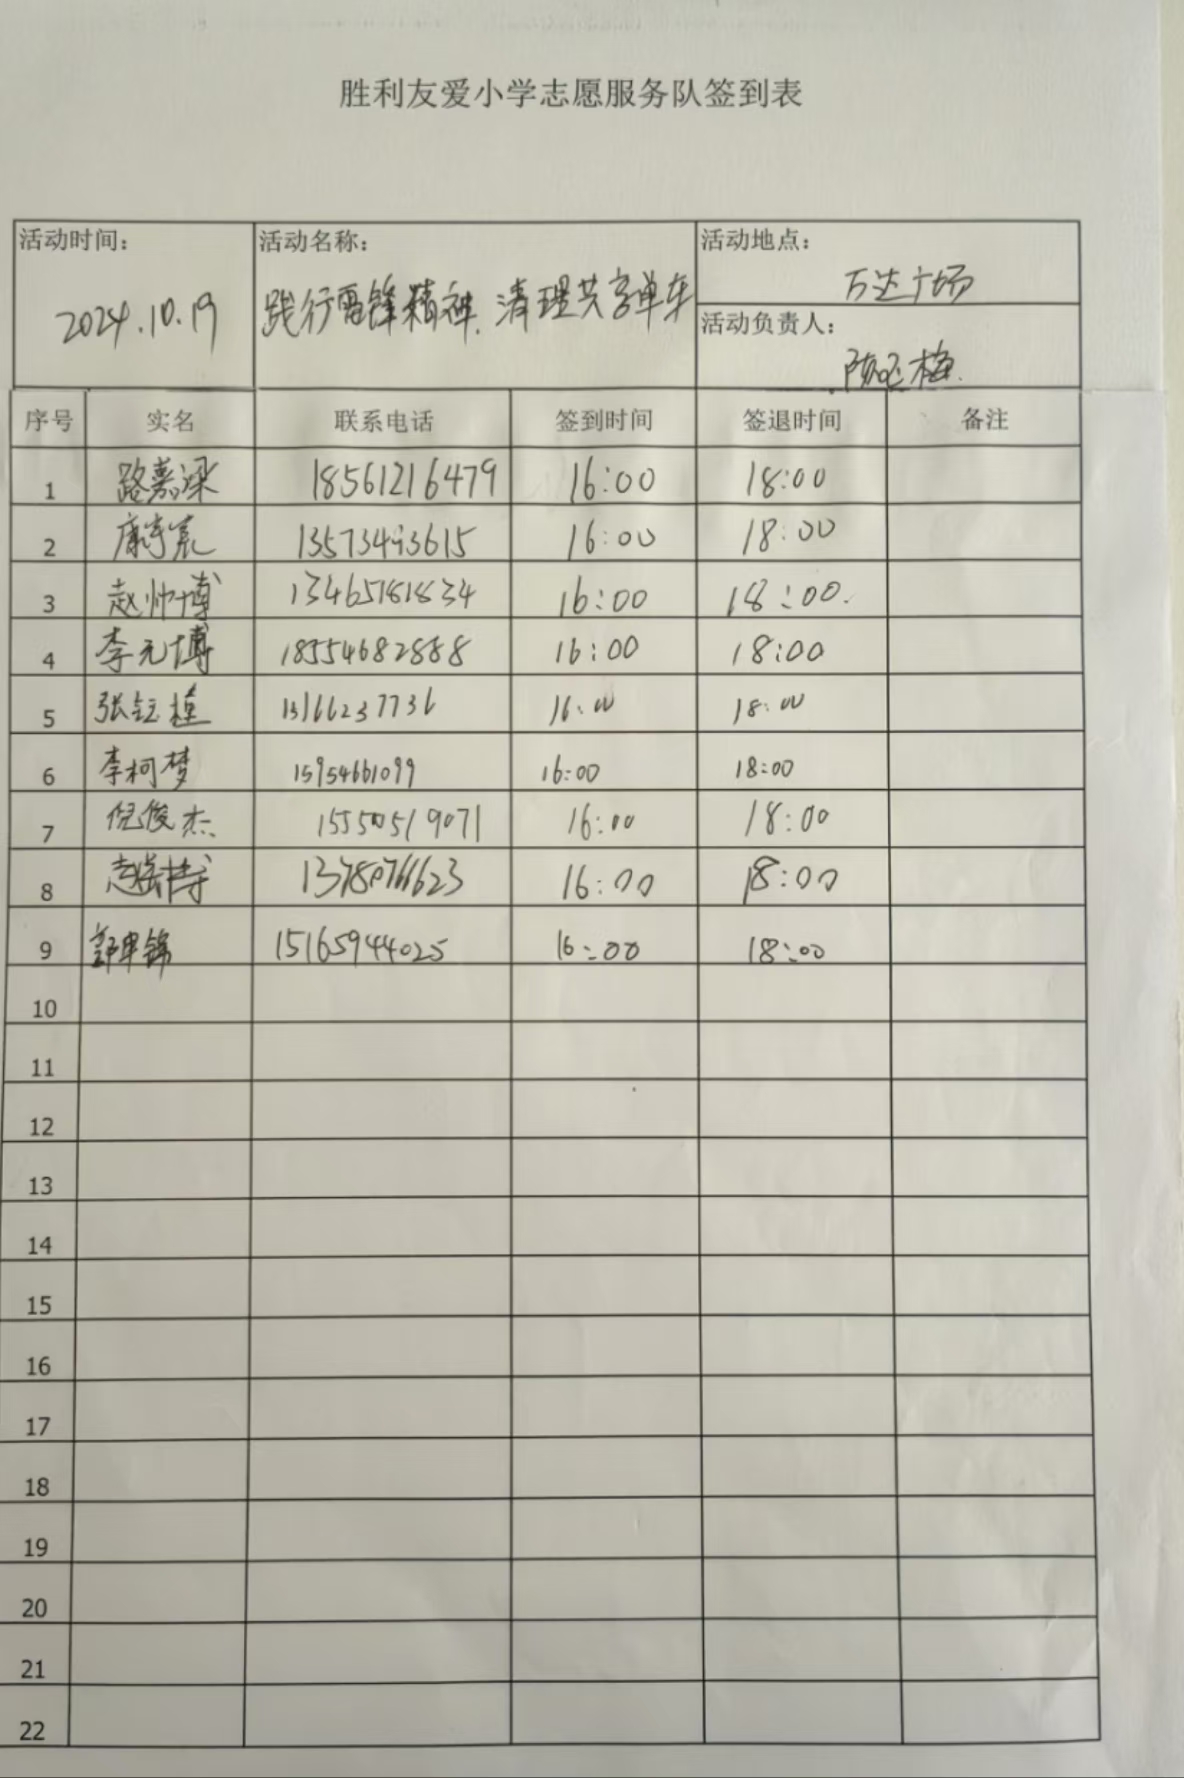 胜利友爱小学志愿服务队签到表
活动时间： 活动名称： 活动地点：
2024.10.19 践行雷锋精神、清理共享单车 万达广场
活动负责人：
序号 实名 联系电话 签到时间 签退时间 备注
1 路嘉梁 18561216479 16:00 18:00
2 16:00 18:00
3 赵帅博 13465181834 16:00 18:00.
4 李元博 18554682888 16:00 18:00
5 13166237736 16:00 18:00
6 李柯梦 15954661099 16:00 18:00
7 倪俊杰 16:00 18:00
8 16:00 18:00
9 15165944025 16:00 18:00
10
11
12
13
14
15
16
17
18
19
20
21
22